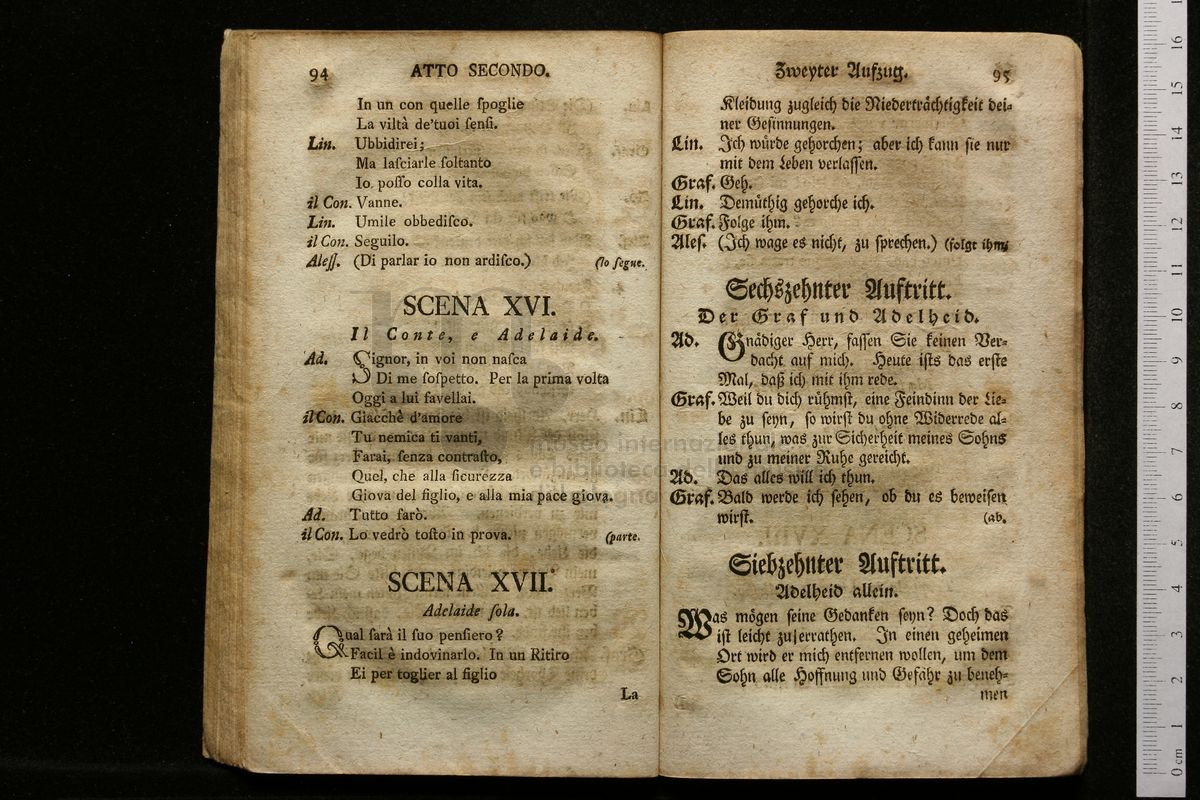 94 ATTO SECONDO.
In un con quelle ſpoglie
La viltà de'tuoi ſenſi.
Lin. Ubbidirei;
Ma laſciarle ſoltanto
Io poſſo colla vita.
il Con. Vanne.
Lin. Umile obbediſco.
il Con. Seguilo.
Aleſſ. (Di parlar io non ardiſco.) (lo ſegue.
SCENA XVI.
Il Conte, e Adelaide.
Ad. Signor, in voi non naſca
Di me ſoſpetto. Per la prima volta
Oggi a lui favellai.
il Con. Giacchè d'amore
Tu nemica ti vanti,
Farai, ſenza contraſto,
Quel, che alla ſicurezza
Giova del figlio, e alla mia pace giova.
Ad. Tutto farò.
il Con. Lo vedrò toſto in prova. (parte.
SCENA XVII.
Adelaide ſola.
Qual farà il ſuo penſiero?
Facil è indovinarlo. In un Ritiro
Ei per toglier al figlio
La
Zweyter Aufzug. 95
Kleidung zugleich die Niederträchtigkeit dei-
ner Geſinnungen.
Lin. Ich würde gehorchen; aber ich kann ſie nur
mit dem Leben verlaſſen.
Graf. Geh.
Lin. Demüthig gehorche ich.
Graf. Folge ihm.
Aleſ. (Ich wage es nicht, zu ſprechen.) (folgt ihm;
Sechszehnter Auftritt.
Der Graf und Adelheid.
Ad. Gnädiger Herr, faſſen Sie keinen Ver-
dacht auf mich. Heute iſts das erſte
Mal, daß ich mit ihm rede.
Graf. Weil du dich rühmſt, eine Feindinn der Lie-
be zu ſeyn, ſo wirſt du ohne Widerrede al-
les thun, was zur Sicherheit meines Sohns
und zu meiner Ruhe gereicht.
Ad. Das alles will ich thun.
Graf. Bald werde ich ſehen, ob du es beweiſen
wirſt. (ab.
Siebzehnter Auftritt.
Adelheid allein.
Was mögen ſeine Gedanken ſeyn? Doch das
iſt leicht zu errathen. In einen geheimen
Ort wird er mich entfernen wollen, um dem
Sohn alle Hoffnung und Gefahr zu beneh-
men
museo internaz
e biblioteca del
0 cm 1 2 3 4 5 6 7 8 9 10 11 12 13 14 15 16